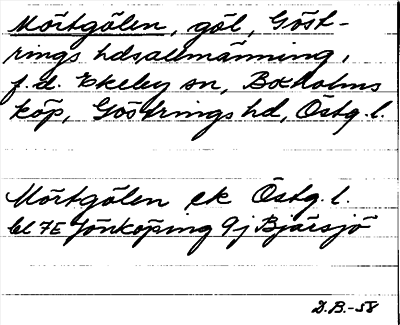 Mörtgölen, göl, Göst-
rings hdsallmänning,
f.d. Ekeby sn, Boxholms
köp, Göstrings hd, Östg. l.
Mörtgölen ek Östg. l.
bl 7E Jönköping 9j Bjärsjö
D.B.-58